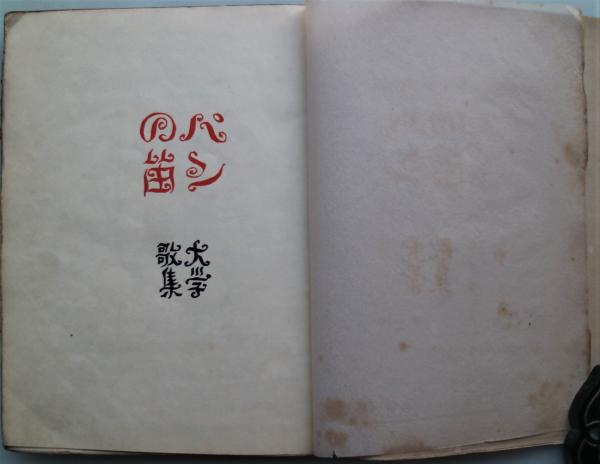 パン
の笛
大学
歌集